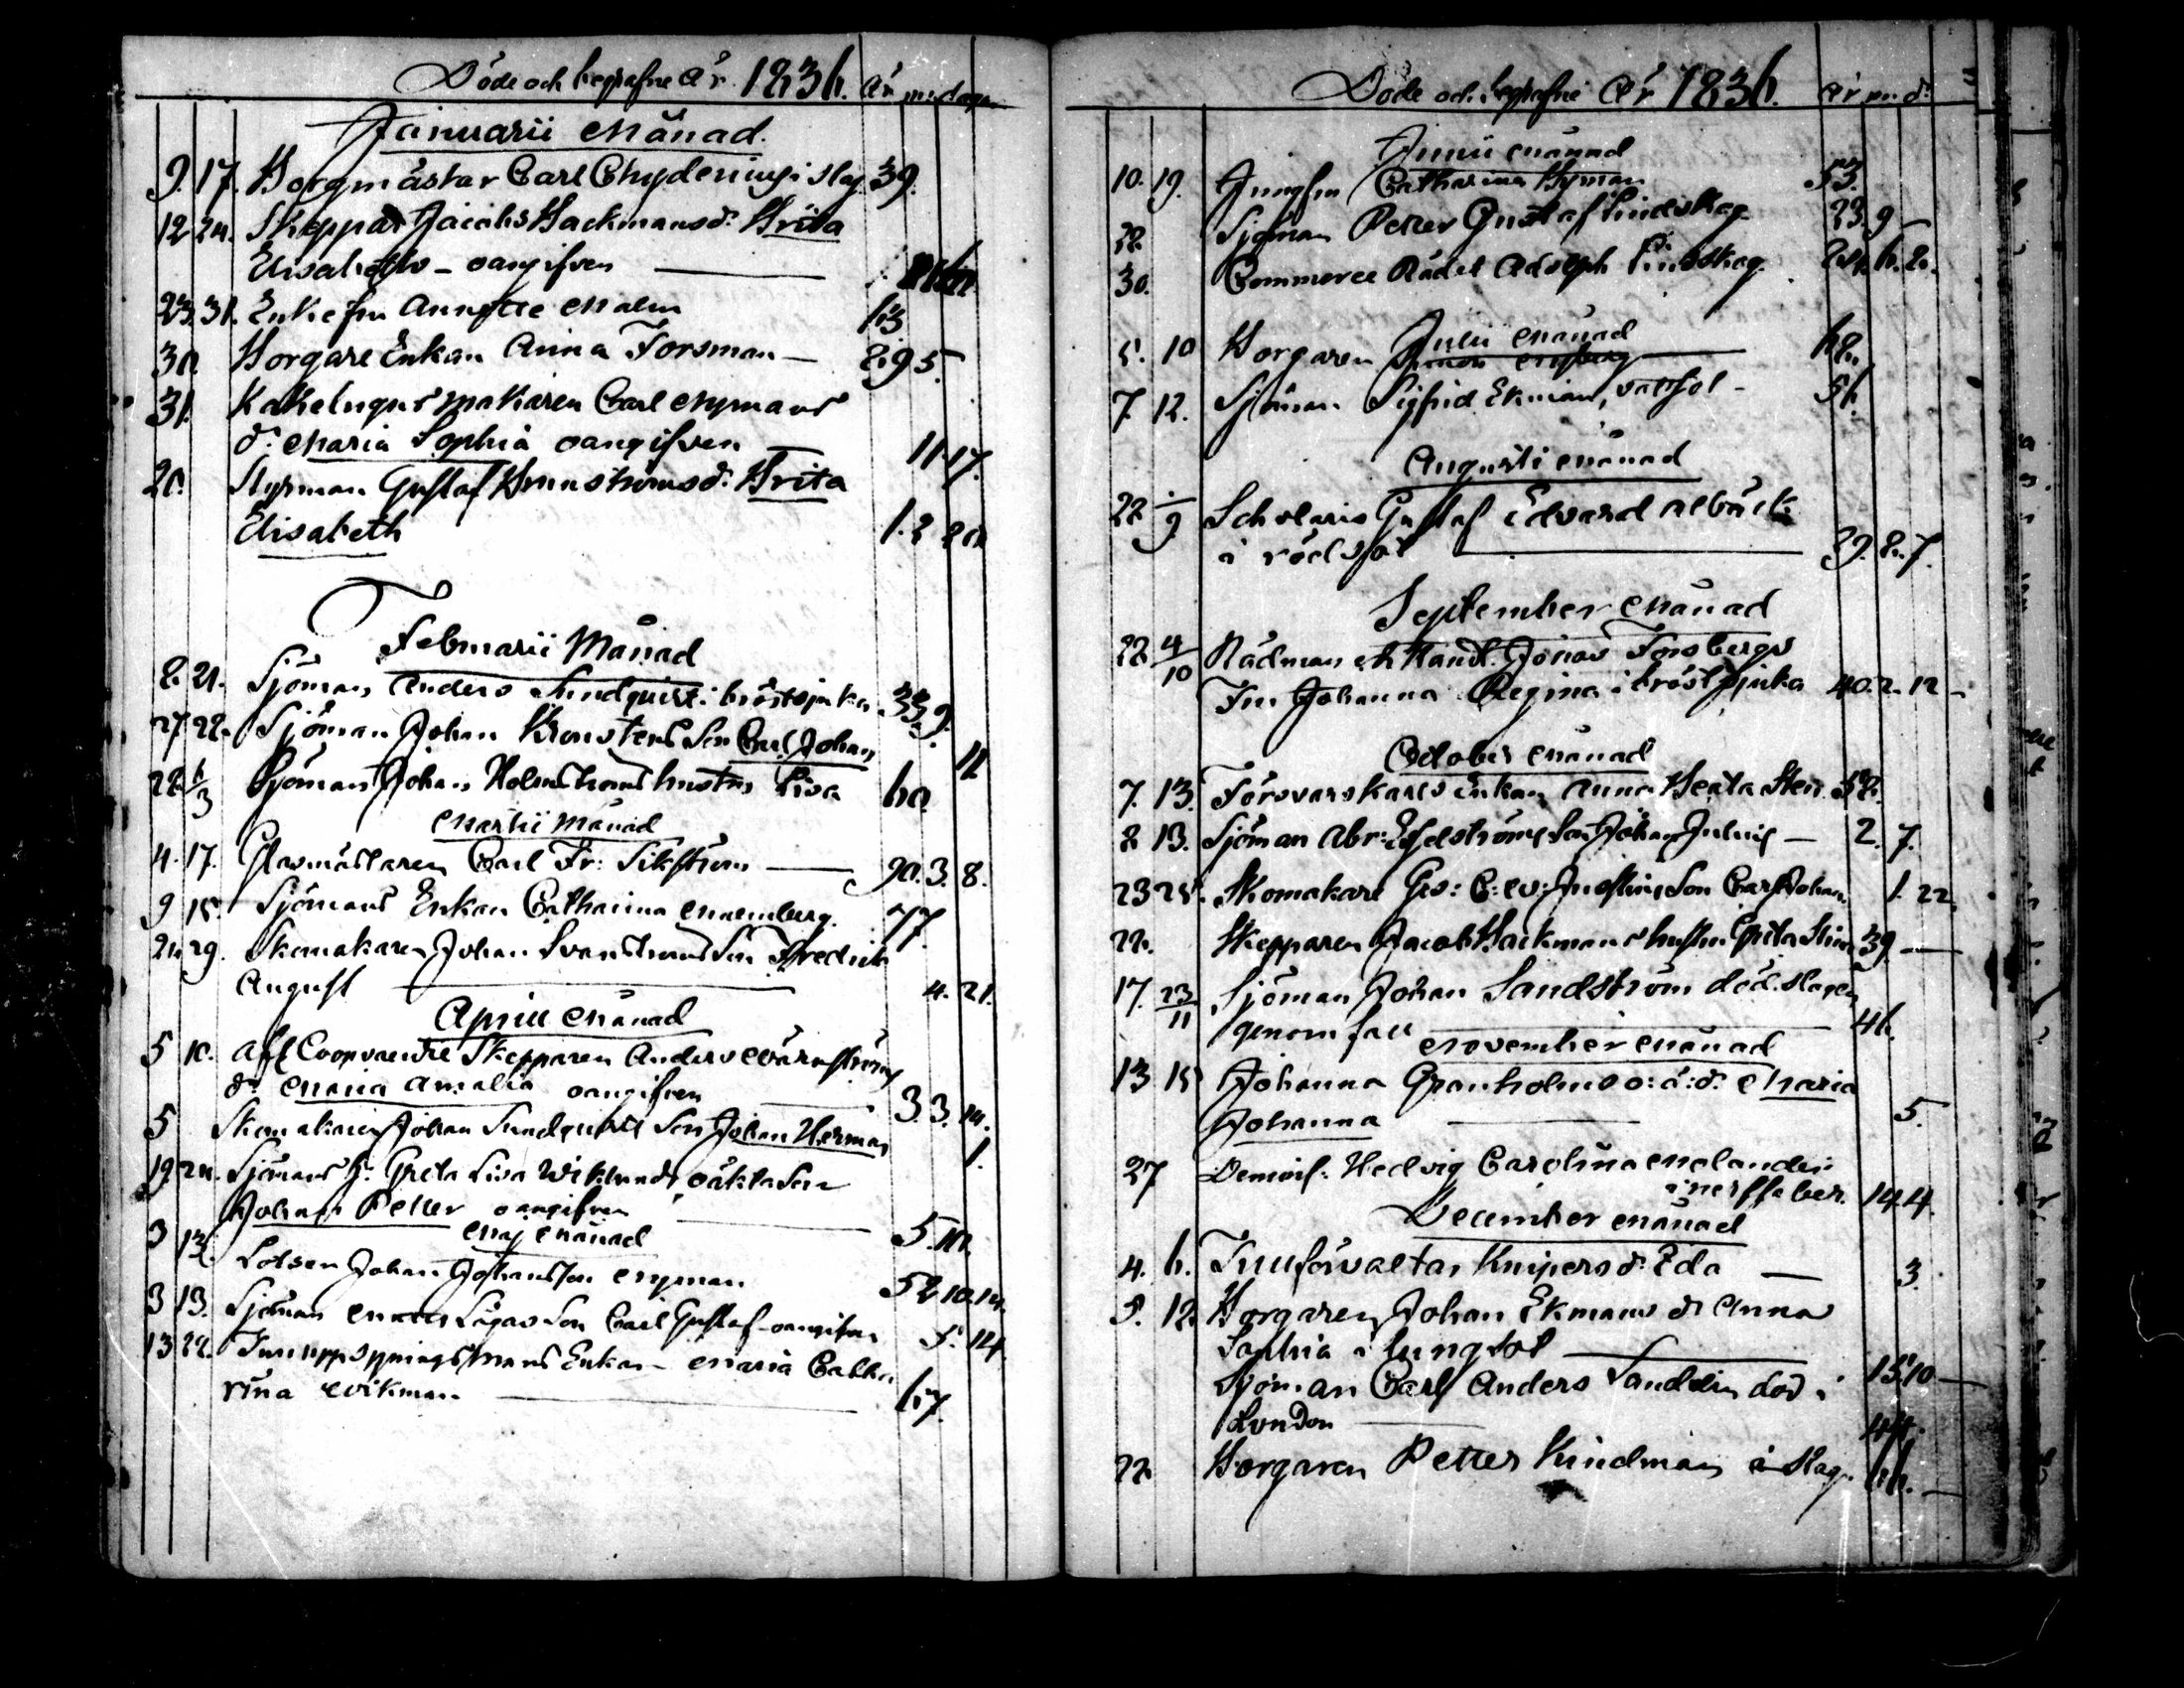 Döde och begrafne År 1836. År m: dagar
Januarii Månad.
9. 17. Borgmästar Carl Chydenius i slag 39.
12 24. Skeppar Jacob Backmans dr Brita
Elisabeth – oangifven
23 31. Enkefru Annette Malm 63
30. Borgare Enkan Anna Forsman – 69 5.
31. Kakelugnsmakaren Carl Nymans
dr Maria Sophia oangifven 11 17.
20. Styrman Gustaf Brunströms dr Brita
Elisabeth 1. 2
Februarii Månad
8. 21. Sjöman Anders Sundquist i bröstsjuka 33 9.
27 28. Sjöman Johan Kronstens Son Carl Johan 11
28 6/3 Sjöman Johan Holmströms hustru Lisa 60.
Martii Månad
4. 17. Glasmästaren Carl Fr: Sikström — 90. 3. 8.
9 15. Sjömans Enkan Catharina Malmberg. 77.
24 29. Skomakaren Johan Svanströms Son Fredrik
August 4. 21.
April Månad
5 10. Afl Coopvaerdie Skepparen Anders Wärnströms
dr Maria Amalia oangifven 3. 3. 14.
5 Skomakaren Johan Sundquists Son Johan Herman 1.
19 24. Sjömans h. Greta Lisa Wiklunds oäkta Son
Johan Petter oangifven 5. 10.
Maj Månad
3 13. Lotsen Johan Johansson Nyman 52 10. 14.
3 13. Sjöman Lågas Son Carl Gustaf oangifven 5. 14.
13 22. Tulluppsyningsmans Enkan – Maria Catha
rina Wikman 67.
Döde och begrafne År 1836. År m. d:
Junii Månad
10. 19. Jungfru Catharina Nyman 53.
22. Sjöman Petter Gustaf Lindskog 23. 9 –
30. Commerce Rådet Adolph Lindskog.
Julii Månad
5. 10 Borgaren Nyberg 68.
7. 12. Sjöman Sigfrid Ekman, vattsot – 56.
Augusti Månad
22 /9 Scholaris Gustaf Edvard Albäck
i rödsot 9. 8. 7.
September Månad
22 4/10 Rådman och Handl. Jonas Forsbergs
Fru Johanna Regina i bröstsjuka 40. 2. 12 –
October Månad
7. 13. Försvarskarls Enkan Anna Beata Sten. 58.
8 13. Sjöman Abr: Edströms Son Johan Julius – 2. 7.
23 25. Skomakare Son Carl Johan 1. 22.
22. Skepparen Jacob Backmans hustru Greta Stina 39 –
17. 23/11 Sjöman Johan Sandström död slagen
genom fall 46.
November Månad
13 15 Johanna Granholms o: ä: dr Maria
Johanna 5.
27 Demois: Hedvig Carolina Melander
i nerffeber. 14. 4.
December Månad
4. 6. Tullförvaltar Knipers dr Eda — 3.
5. 12. Borgaren Johan Ekmans dr Anna
Sophia i lungsot 15. 10 –
Sjöman Carl Anders Sandelin död i
London 44.
22. Borgaren Petter Kindman i slag. 66. –